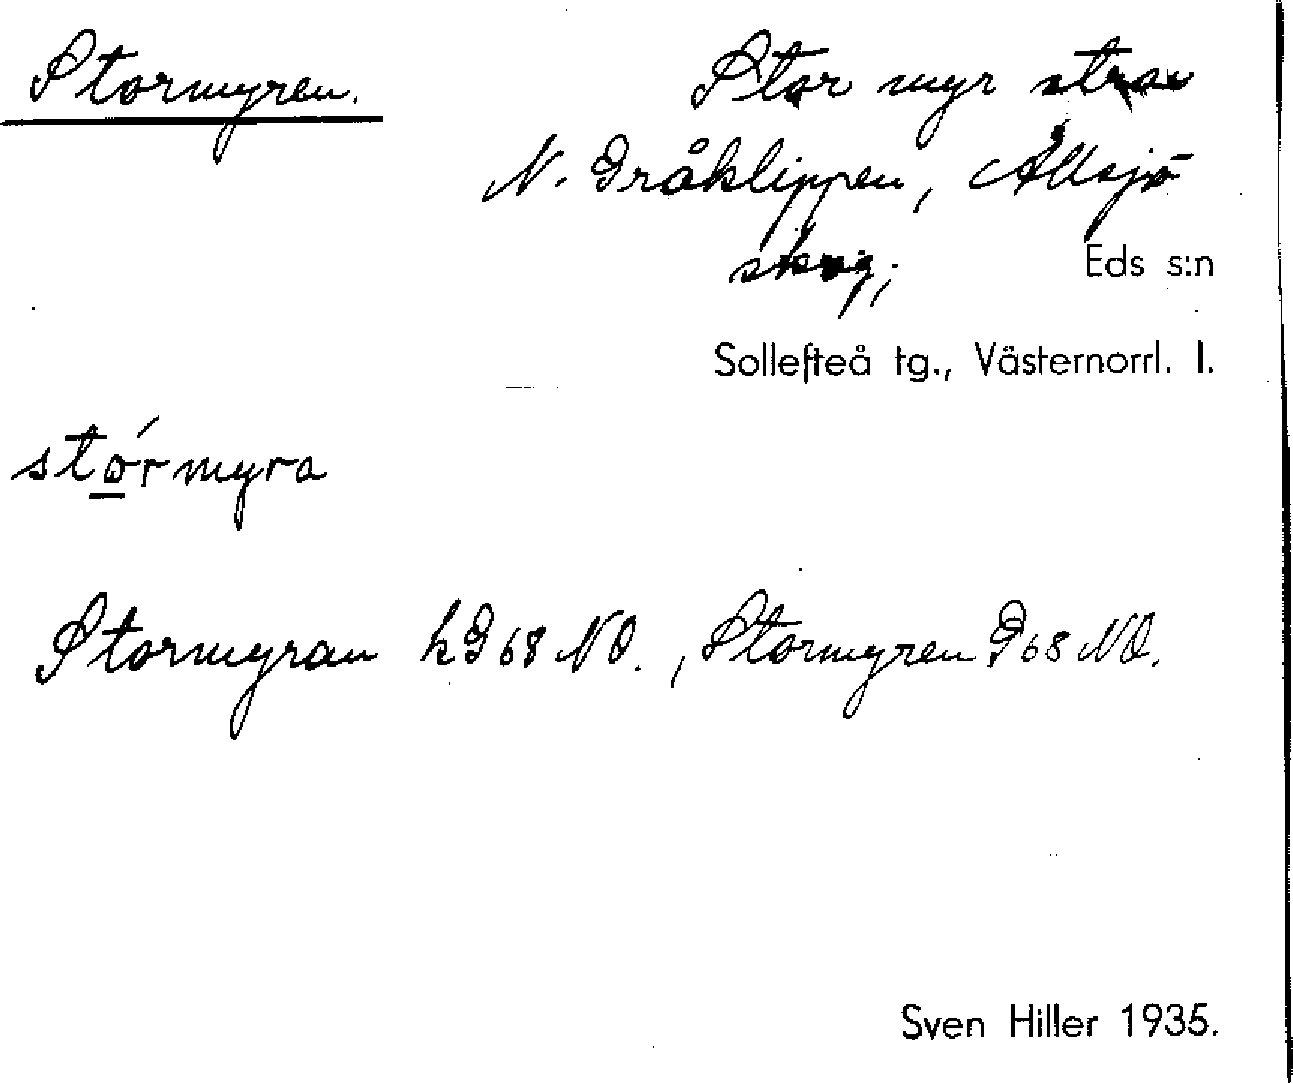 Stormyren.
Stor myr strax
N. Gråklippen, Allsjö
skog; Eds s:n
Sollefteå tg., Västernorrl. l.
stórmyra
Stormyran hG 68 NO. , Stormyren G 68 NO.
Sven Hiller 1935.